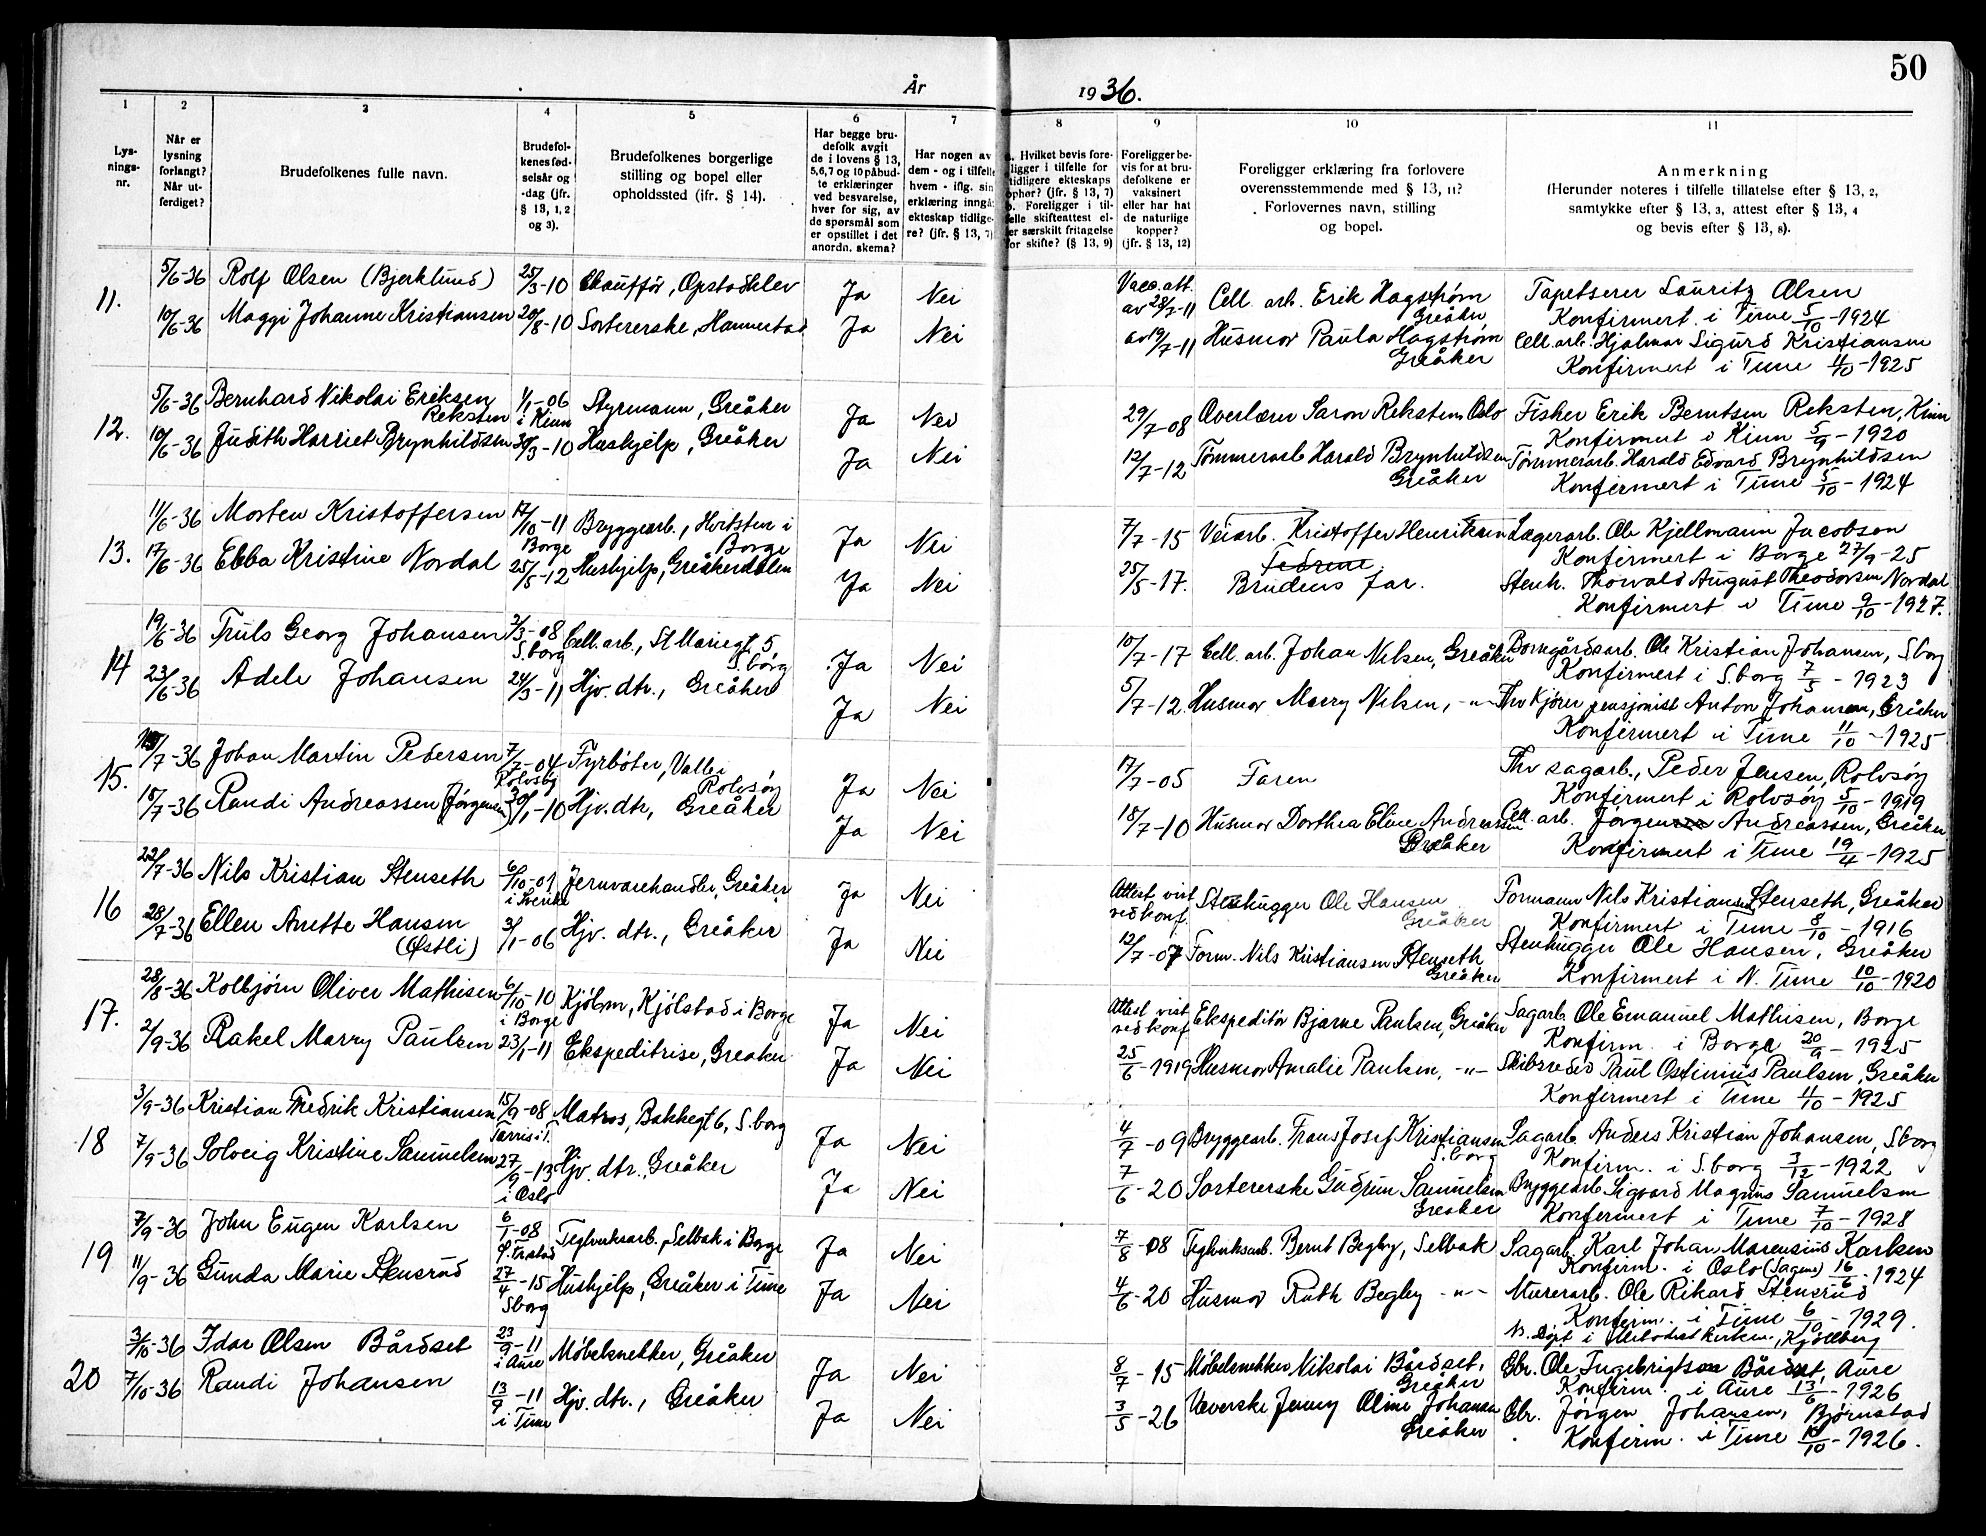 50
År 1936.
1 2 3 4 5 6 7 8 9 10 11
Lys-
nings-
nr.
Når er
lysning
forlangt?
Når ut-
ferdiget?
Brudefolkenes fulle navn.
Brudefol-
kenes fød-
selsår og
-dag (jfr.
§ 13, 1, 2
og 3).
Brudefolkenes borgerlige
stilling og bopel eller
opholdssted (jfr. § 14).
Har begge bru-
defolk avgit
de i lovens § 13,
5,6,7 og 10 påbud-
te erklæringer
ved besvarelse,
hver for sig, av
de spørsmål som
er opstillet i det
anordn. skema?
Har nogen av
dem - og i tilfelle
hvem - iflg. sin
erklæring inngå
ekteskap tidlige-
re? (jfr. § 13, 7)
a. Hvilket bevis fore-
ligger i tilfelle for
tidligere ekteskaps
ophør? (jfr. § 13, 7)
b. Foreligger i til-
felle skifteattest el-
er særskilt fritagelse
for skifte? (§ 13, 9)
Foreligger be-
vis for at bru-
defolkene er
vaksinert
eller har hat
de naturlige
kopper?
(jfr. § 13, 12)
Foreligger erklæring fra forlovere
overensstemmende med § 13, 11?
Forlovernes navn, stilling
og bopel.
Anmerkning
(Herunder noteres i tilfelle tillatelse efter § 13, 2,
samtykke efter § 13, 3, attest efter § 13, 4
og bevis efter § 13, 8).
11.
5/6-36 Rolf Olsen (Bjerklund) 25/3-10 Chauffør, Opstadhlev Ja Nei Vacc.att. av 28/7-11 Cell. arb. Erik Hagstrøm Greåker Tapetserer Lauritz Olsen
Konfirmert i Tune 5/10-1924
10/6-36 Maggi Johanne Kristiansen 20/8-10 Sortererske, Hannestad Ja Nei av 19/7-11 Husmor Paula Hagstrøm Greåker Cell.arb. Hjalmar Sigurd Kristiansen
Konfirmert i Tune 11/10-1925
12.
5/6-36 Bernhard Nikolai Eriksen Reksten 1/1-06 i Kinn Styrmann, Greåker Ja Nei 29/7-08 Overlærer Saron Reksten, Oslo Fisker Erik Berntsen Reksten, Kinn
Konfirmert i Kinn 5/9-1920
10/6-36 Judith Harriet Brynhildsen 30/3-10 Hushjelp, Greåker Ja Nei 12/7-12 Tømmerarb Harald Brynhildsen Greåker Tømmerarb. Harald Edvard Brynhildsen
Konfirmert i Tune 5/10-1924
13.
11/6-36 Morten Kristoffersen 17/10-11 Borge Bryggearb., Hvitsten i Borge Ja Nei 7/7-15 Veiarb. Kristoffer Henriksen Lagerarb. Ole Kjellmann Jacobsen
Konfirmert i Borge 27/9-25
17/6-36 Ebba Kristine Nordal 25/5-12 Hushjelp, Greåkerdalen Ja Nei 25/5-17. Brudens far. Stenh. Thorvald August Theodorsen Nordal
Konfirmert i Tune 9/10-1927.
14
19/6-36 Truls Georg Johansen 2/3-08 S.borg Cell.arb., St Mariegt. 5 S.borg Ja Nei 10/7-17 Cell. arb. Johan Nilsen, Greåker Borregårdsarb. Ole Kristian Johansen, S.borg
Konfirmert i S.borg 7/5-1923
23/6-36 Adele Johansen 24/3-11 Hjv. dtr., Greåker Ja Nei 5/7-12. Husmor Marry Nilsen, -"- Fhv Kjører pensjonist Anton Johansen, Greåker
Konfirmert i Tune 11/10-1925
15.
/7-36 Johan Martin Pedersen 7/7-04 Rolvsøy Fyrbøter, Valle i Rolvsøy Ja Nei 17/7-05 Faren Fhv sagarb., Peder Jensen, Rolvsøy
Konfirmert i Rolvsøy 5/10-1919
18/7-36 Randi Andreassen (Jørgensen) 30/1-10 Hjv. dtr, Greåker Ja Nei 18/7-10 Husmor Dorthea Eline Andreassen Greåker Cell. arb. Jørgen Andreassen, Greåker
Konfirmert i Tune 19/4-1925
16
22/7-36 Nils Kristian Stenseth 6/10-01 i Sverike Jernvarehandler, Greåker Ja Nei Attest vist ved konf. Stenhugger Ole Hansen Greåker Formann Nils Kristiansen Stenseth, Greåker
Konfirmert i Tune 8/10-1916
28/7-36 Ellen Anette Hansen (Østli) 3/1-06 Hjv. dtr., Greåker Ja Nei 12/7-07 Form. Nils Kristiansen Stenseth Greåker Stenhugger Ole Hansen, Greåker
Konfirmert i N. Tune 10/10-1920
17.
28/8-36 Kolbjørn Oliver Mathisen 6/10-10 i Borge Kjøbm, Kjølstad i Borge Ja Nei Attest vist ved konf. Ekspeditør Bjarne Paulsen, Greåker Sagarb. Ole Emanuel Mathisen, Borge
Konfirm. i Borge 20/9-1925
2/9-36 Rakel Marry Paulsen 23/1-11 Ekspeditrise, Greåker Ja Nei 25/6-1919 Husmor Amalie Paulsen, -"- Skibsreder Paul Ostinius Paulsen, Greåker
Konfirmert i Tune 11/10-1925
18
3/9-36 Kristian Fredrik Kristiansen 15/9-08 Matros, Bakkegt 6, S.borg Ja Nei 4/7-09 Bryggearb. Frans Josef Kristiansen S.borg Sagarb. Anders Kristian Johansen, S.borg
Konfirm. i S.borg 3/12-1922
7/9-36 Solveig Kristine Samuelsen 27/9-13 i Oslo Hjv. dtr. Greåker Ja Nei 7/6-20 Sortererske Gudrun Samuelsen Greåker Bryggearb Sigvard Magnus Samuelsen
Konfirmert i Tune 7/10-1928
19
7/9-36 John Eugen Karlsen 6/1-08 Teglverksarb., Selbak i Borge Ja Nei 7/8-08 Teglverksarb. Bernt Begby, Selbak Sagarb. Karl Johan Marensius Karlsen
Konfirm. i Oslo (Sagene) 16/6-1924
11/9-36 Gunda Marie Stensrud 27/4-15 Sborg Hushjelp, Greåker i Tune Ja Nei 4/6-20 Husmor Ruth Begby -"- Murerarb. Ole Rikard Stensrud
Konfirm. i Tune 6/10-1929.
20
3/10-36 Idar Olsen Bårdset 23/9-11 i Aure Møbelsnekker, Greåker Ja Nei 8/7-15 Møbelsnekker Nikolai Bårdset, Greåker Gbr. Ole Ingebrigtsen Bårdset, Aure
Konfirm. i Aure 13/6-1926
7/10-36 Randi Johansen 13/9-11 i Tune Hjv. dtr., Greåker Ja Nei 3/5-26 Veverske Jenny Oline Johansen Greåker N. døpt i Metodistkirken, Gbr. Jørgen Johansen, Bjørnstad
Konfirm. i Tune 10/10-1926.